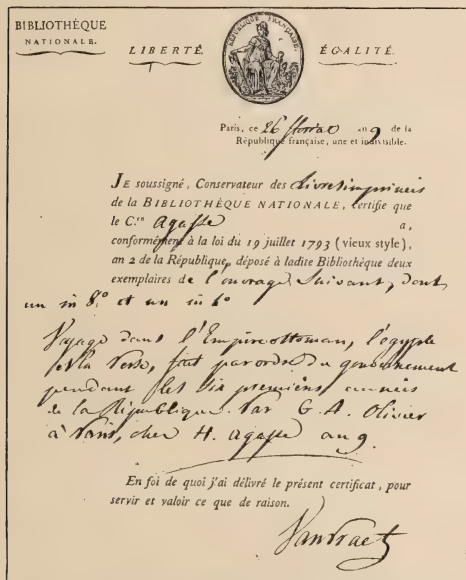 BIBLIOTHÈQUE
NATIONALE.
LIBERTÉ.
RÉPUBLIQUE FRANÇAISE.
ÉGALITÉ.
Paris, ce 26 floréal an 9 de la
République française, une et indivisible.
JE soussigné, Conservateur des Livres imprimés
de la BIBLIOTHÈQUE NATIONALE, certifie que
le C.en Agasse a,
conformément à la loi du 19 juillet 1793 (vieux style),
an 2 de la République, déposé à ladite Bibliothèque deux
exemplaires de l'ouvrage suivant, dont
un in 8.o et un in 4o
Voyage dans l'Empire ottoman, l'égypte
et la Perse, fait par ordre du gouvernement
pendant les six premières années
de la République. Par G. A. Olivier
à Paris, chez H. Agasse an 9.
En foi de quoi j'ai délivré le présent certificat, pour
servir et valoir ce que de raison.
VanPraet